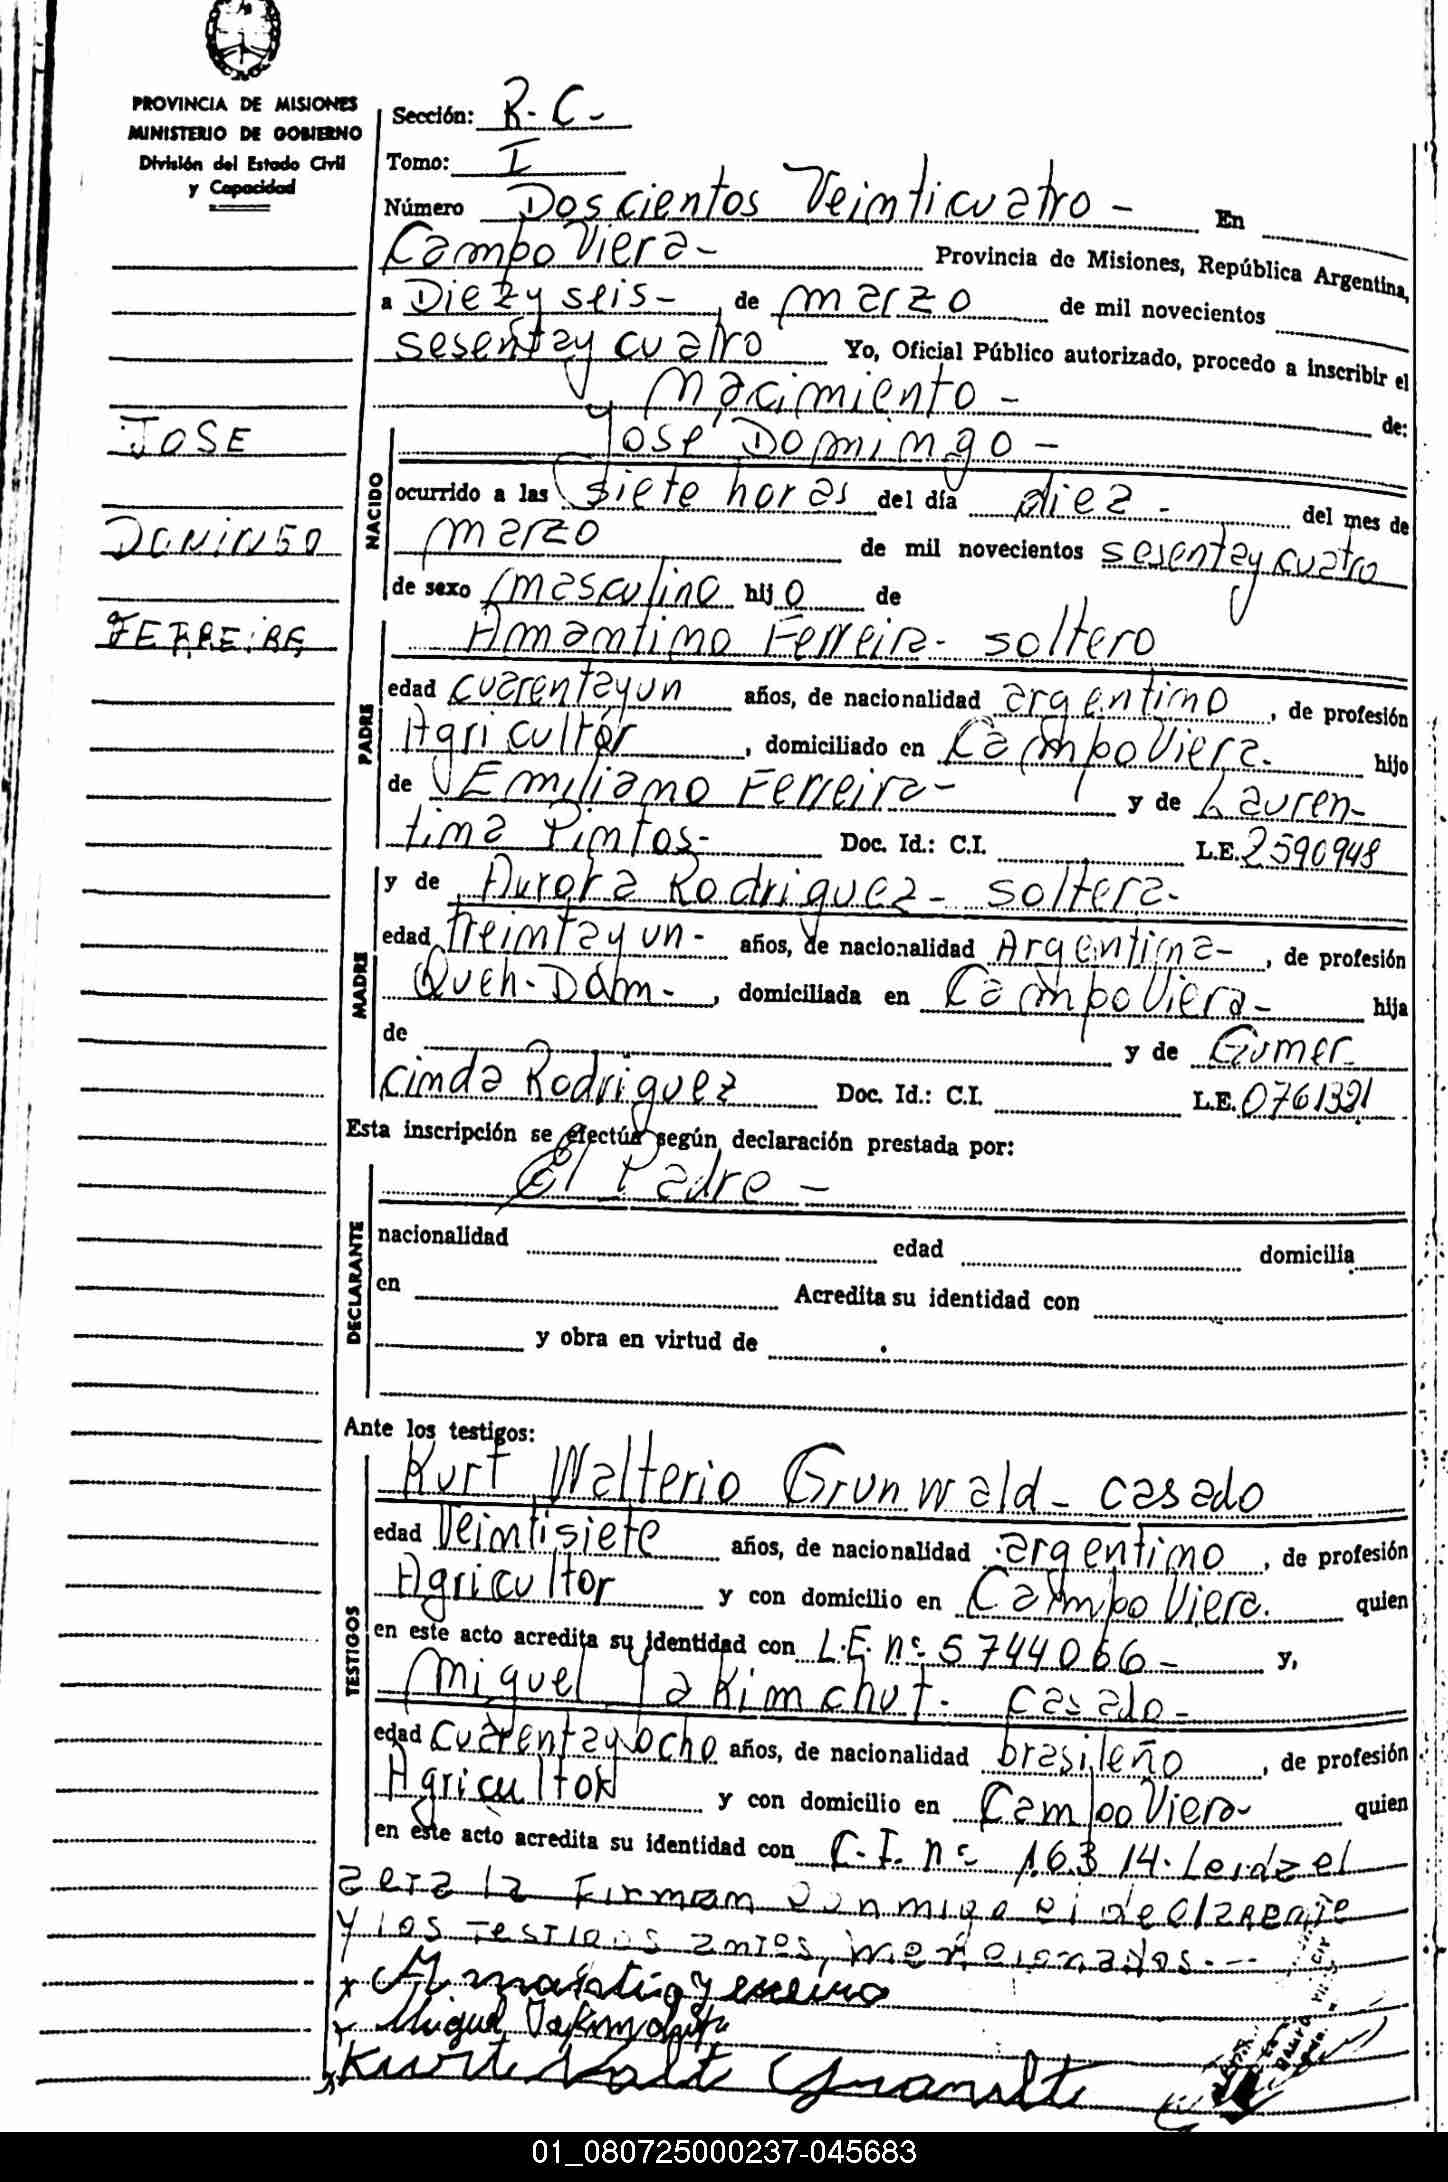 PROVINCIA DE MISIONES
MINISTERIO DE GOBIERNO
División del Estado Civil
y Capacidad
Sección: R. C. -
Tomo: I
Número Doscientos Veinticuatro - En
Campo Viera - Provincia de Misiones, República Argentina,
a Diez y seis - de marzo de mil novecientos
sesenta y cuatro Yo, Oficial Público autorizado, procedo a inscribir el
nacimiento - de:
JOSE
DOMINGO
FERREIRA
NACIDO
José Domingo -
ocurrido a las siete horas del día diez - del mes de
marzo de mil novecientos sesenta y cuatro
de sexo masculino hijo de
PADRE
Amantino Ferreira - soltero
edad cuarenta y un años, de nacionalidad argentino, de profesión
Agricultor, domiciliado en Campo Viera. hijo
de Emiliano Ferreira - y de Lauren-
tina Pintos - Doc. Id.: C.I. L.E. 2590948
MADRE
y de Aurora Rodriguez - soltera -
edad treinta y un - años, de nacionalidad Argentina -, de profesión
Queh - Dom -, domiciliada en Campo Viera - hija
de y de Gumer-
cinda Rodriguez Doc. Id.: C.I. L.E. 0761321
Esta inscripción se efectúa según declaración prestada por:
DECLARANTE
El Padre -
nacionalidad edad domicilia
en Acredita su identidad con
y obra en virtud de
Ante los testigos:
TESTIGOS
Kurt Walterio Grunwald - casado
edad Veintisiete años, de nacionalidad argentino, de profesión
Agricultor y con domicilio en Campo Viera. quien
en este acto acredita su identidad con L.E. nº 5744066 - y,
Miguel Jakimchut - casado -
edad cuarenta y ocho años, de nacionalidad brasileño, de profesión
Agricultor y con domicilio en Campo Viera - quien
en este acto acredita su identidad con C.I. nº 16314. Leida el
acta la Firman conmigo el declarente
y los testigos antes mencionados. --
x Amantio Ferreira
Miguel Jakimchut
x Kurt Walt
01_080725000237-045683